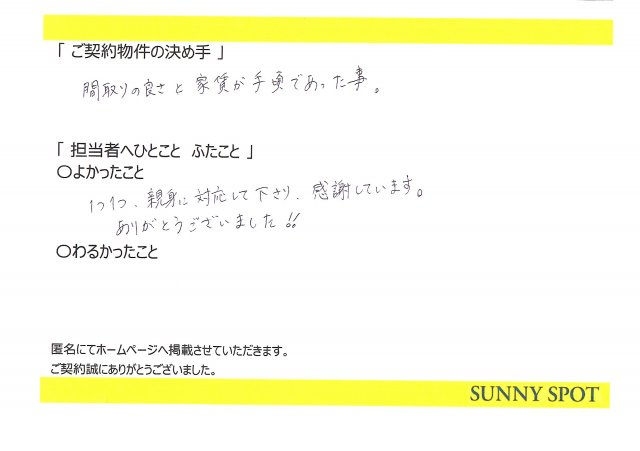 「 ご契約物件の決め手 」
間取りの良さと 家賃が手頃であった事。
「 担当者へひとこと ふたこと 」
〇よかったこと
1つ1つ、親身に対応して下さり、感謝しています。
ありがとうございました!!
〇わるかったこと
匿名にてホームページへ掲載させていただきます。
ご契約誠にありがとうございました。
SUNNY SPOT